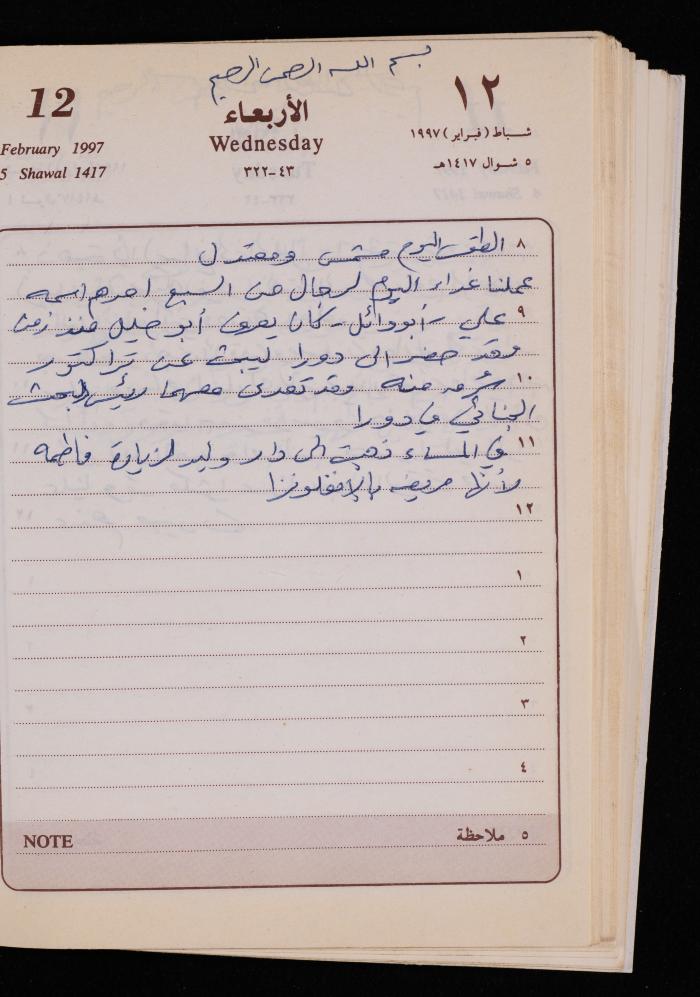 بسم الله الرحمن الرحيم
12
الأربعاء
١٢
February 1997
Wednesday
شباط (فبراير) ١٩٩٧
5 Shawal 1417
٤٣-٣٢٢
٥ شوال ١٤١٧هـ
٨ الطقس اليوم مشمس ومعتدل
عملنا غداء اليوم لرجال من السبع احدهم اسمه
٩ علي - أبو وائل - كان يعرف أبو خليل منذ زمن
وقد حضر الى دورا ليبحث عن تراكتور
١٠ سُرق منه وقد تغدى معهما رئيس البحث
الجنائي في دورا
١١ في المساء ذهبت الى دار وليد لزيارة فاطمه
لأنها مريضه بالإنفلونزا
١٢
١
٢
٣
٤
NOTE
٥ ملاحظة